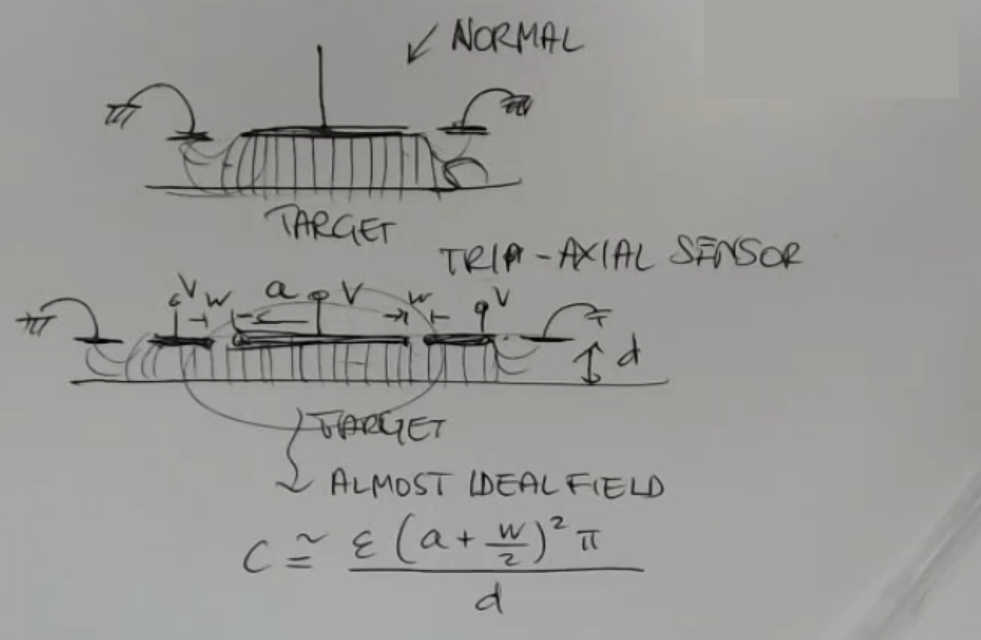 NORMAL
TARGET
TRIA-AXIAL SENSOR
V w a V w V
d
TARGET
ALMOST IDEAL FIELD
C ≃ ε (a + w/2)² π / d